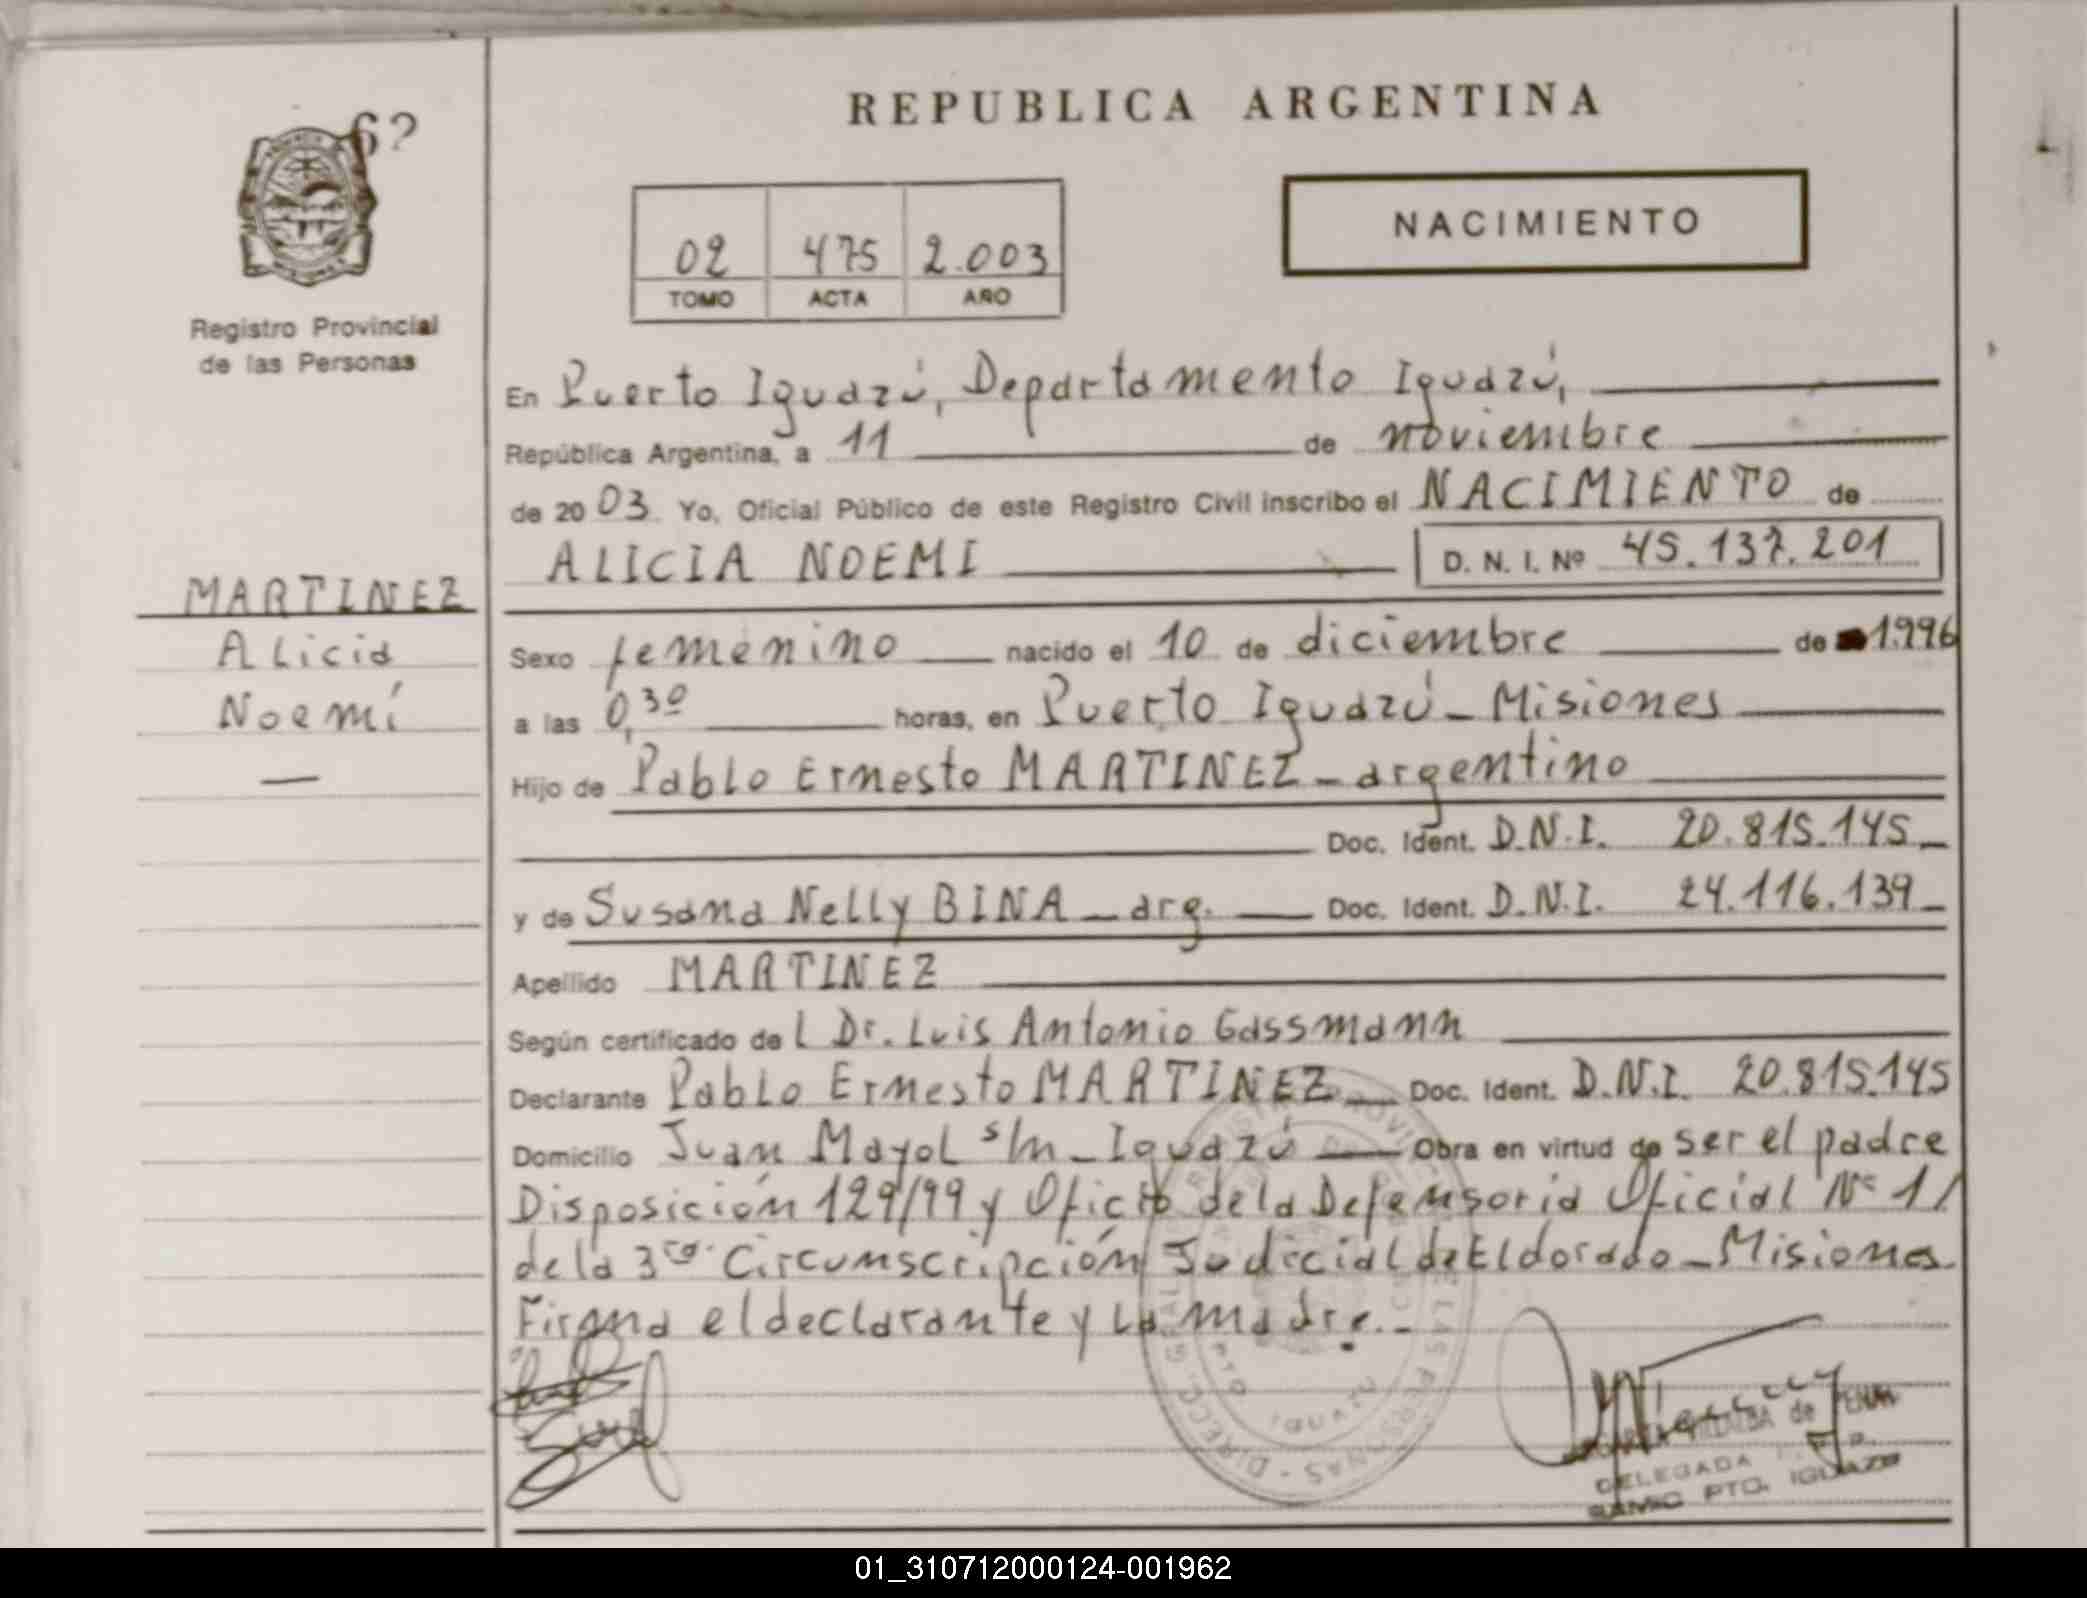 6?
REPUBLICA ARGENTINA
NACIMIENTO
02 475 2.003
TOMO ACTA AÑO
Registro Provincial
de las Personas
En Puerto Iguazú, Departamento Iguazú,
República Argentina, a 11 de noviembre
de 2003 Yo, Oficial Público de este Registro Civil inscribo el NACIMIENTO de
ALICIA NOEMI D. N. I. Nº 45.137.201
MARTINEZ
Alicia
Noemí
Sexo femenino nacido el 10 de diciembre de 1.996
a las 0,30 horas, en Puerto Iguazú - Misiones
Hijo de Pablo Ernesto MARTINEZ - argentino
Doc. Ident. D.N.I. 20.815.145
y de Susana Nelly BINA - arg. Doc. Ident. D.N.I. 24.116.139
Apellido MARTINEZ
Según certificado del Dr. Luis Antonio Gassmann
Declarante Pablo Ernesto MARTINEZ Doc. Ident. D.N.I. 20.815.145
Domicilio Juan Mayol s/n - Iguazú Obra en virtud de ser el padre
Disposición 129/99 y Oficio de la Defensoria Oficial Nº 1/
de la 3ra. Circunscripción Judicial de Eldorado - Misiones
Firma el declarante y la madre.-
VILLALBA de
DELEGADA
SAMIC PTO. IGUAZU
01_310712000124-001962